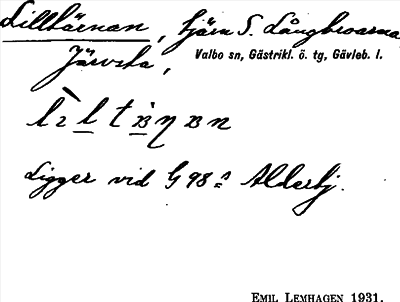 Lilltärnan, tjärn S. Långbroarna,
Järvsta, Valbo sn, Gästrikl. ö. tg, Gävleb. l.
Ligger vid G 98:s Alderbj.
EMIL LEMHAGEN 1931.